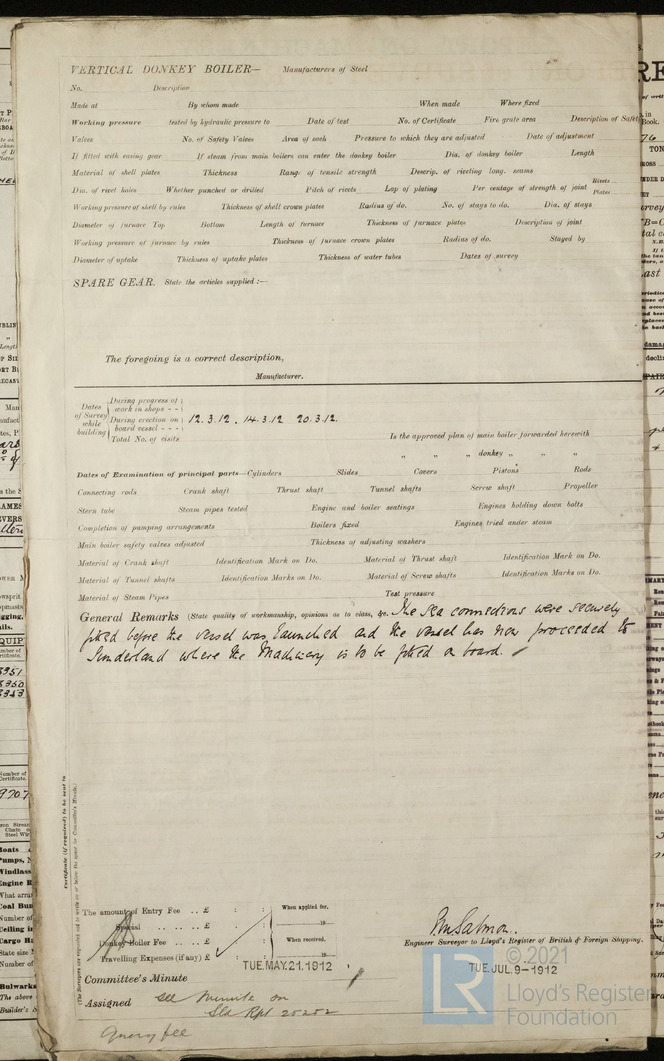 VERTICAL DONKEY BOILER— Manufacturers of Steel
No. Description
Made at By whom made When made Where fixed
Working pressure tested by hydraulic pressure to Date of test No. of Certificate Fire grate area Description of Safety
Valves No. of Safety Valves Area of each Pressure to which they are adjusted Date of adjustment
If fitted with easing gear If steam from main boilers can enter the donkey boiler Dia. of donkey boiler Length
Material of shell plates Thickness Range of tensile strength Descrip. of riveting long. seams
Dia. of rivet holes Whether punched or drilled Pitch of rivets Lap of plating Per centage of strength of joint Rivets Plates
Working pressure of shell by rules Thickness of shell crown plates Radius of do. No. of stays to do. Dia. of stays
Diameter of furnace Top Bottom Length of furnace Thickness of furnace plates Description of joint
Working pressure of furnace by rules Thickness of furnace crown plates Radius of do. Stayed by
Diameter of uptake Thickness of uptake plates Thickness of water tubes Dates of survey
SPARE GEAR. State the articles supplied :—
The foregoing is a correct description,
Manufacturer.
Dates of Survey while building
During progress of work in shops - -
During erection on board vessel - - -
12.3.12. 14.3.12 20.3.12.
Total No. of visits
Is the approved plan of main boiler forwarded herewith
" " " donkey " " "
Dates of Examination of principal parts—Cylinders Slides Covers Pistons Rods
Connecting rods Crank shaft Thrust shaft Tunnel shafts Screw shaft Propeller
Stern tube Steam pipes tested Engine and boiler seatings Engines holding down bolts
Completion of pumping arrangements Boilers fixed Engines tried under steam
Main boiler safety valves adjusted Thickness of adjusting washers
Material of Crank shaft Identification Mark on Do. Material of Thrust shaft Identification Mark on Do.
Material of Tunnel shafts Identification Marks on Do. Material of Screw shafts Identification Marks on Do.
Material of Steam Pipes Test pressure
General Remarks (State quality of workmanship, opinions as to class, &c. The Sea connections were securely
fitted before the vessel was launched and the vessel has now proceeded to
Sunderland where the Machinery is to be fitted on board.
Certificate (if required) to be sent to
(The Surveyors are requested not to write on or below the space for Committee's Minute.)
The amount of Entry Fee . . £ : : When applied for,
Special . . . . . . £ : : 19
Donkey Boiler Fee . . . £ : : When received,
Travelling Expenses (if any) £ : : 19
TUE.MAY.21.1912
Engineer Surveyor to Lloyd's Register of British & Foreign Shipping.
TUE.JUL.9-1912
Committee's Minute
Assigned see minute on
Sld Rpt 25252
Query fee
© 2021
LR
Lloyd's Register
Foundation